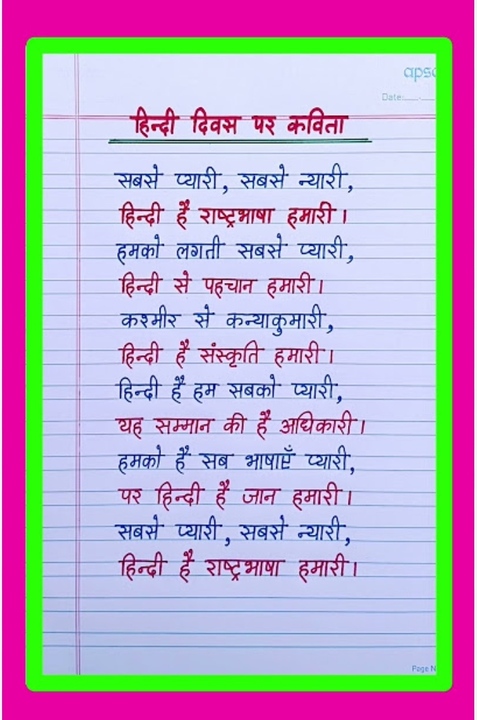 apsa
Date:
हिन्दी दिवस पर कविता
सबसे प्यारी, सबसे न्यारी,
हिन्दी है राष्ट्रभाषा हमारी।
हमको लगती सबसे प्यारी,
हिन्दी से पहचान हमारी।
कश्मीर से कन्याकुमारी,
हिन्दी है संस्कृति हमारी।
हिन्दी है हम सबको प्यारी,
यह सम्मान की है अधिकारी।
हमको है सब भाषाएँ प्यारी,
पर हिन्दी है जान हमारी।
सबसे प्यारी, सबसे न्यारी,
हिन्दी है राष्ट्रभाषा हमारी।
Page N